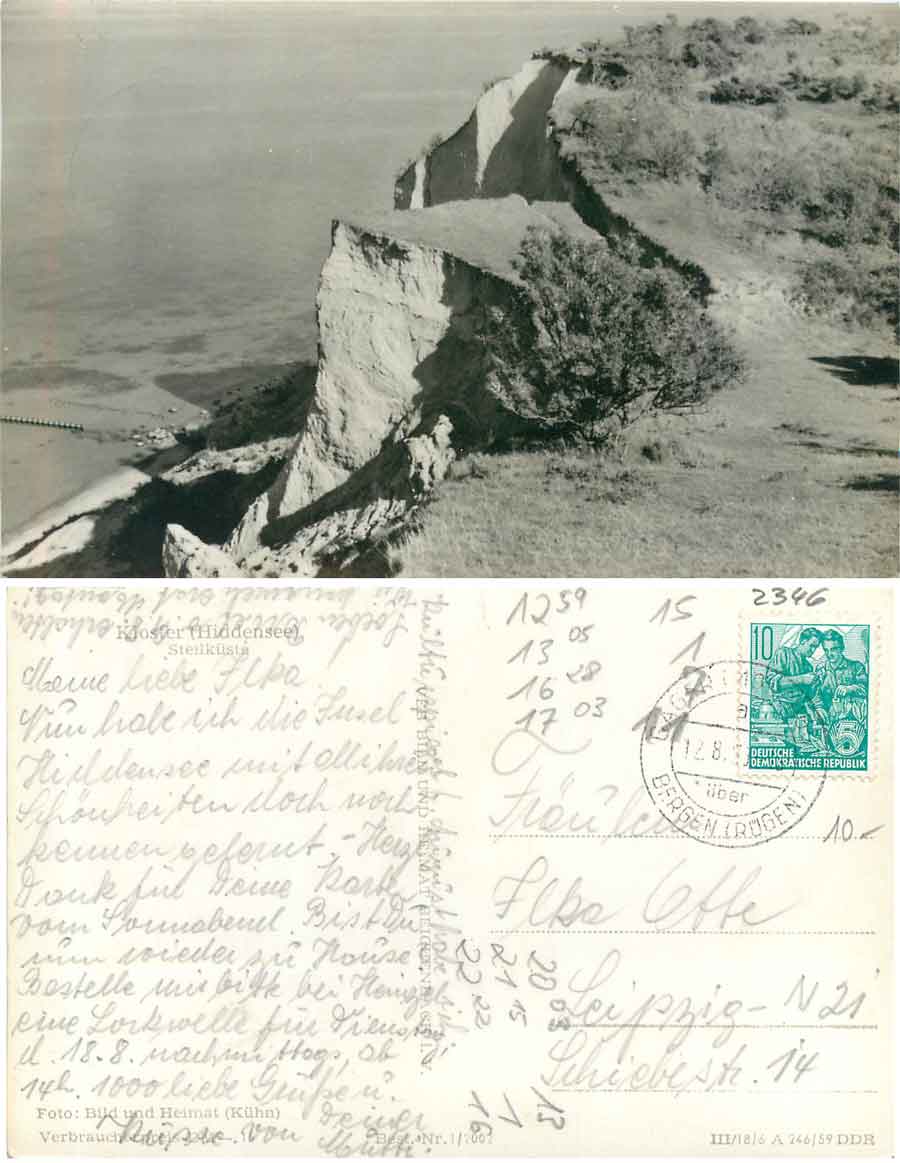 Kloster (Hiddensee)
Steilküste
Meine liebe Ilka!
Nun habe ich die Insel
Hiddensee mit all ihren
Schönheiten doch noch
kennen gelernt. Herzl.
Dank für Deine Karte
vom Sonnabend. Bist Du
nun wieder zu Hause?
Bestelle mir bitte bei Henzel
eine Lockwelle für Dienstag
d. 18.8. nachmittags, ab
14h. 1000 liebe Grüße u.
Küsse von Deiner
Mutti.
Foto: Bild und Heimat (Kühn)
Verbraucherpreis
Best. Nr. 1/2007
VEB BILD UND HEIMAT REICHENBACH I. V.
12 59
13 05
16 28
17 03
15
1
7
11
2346
10
DEUTSCHE
DEMOKRATISCHE REPUBLIK
5
12.8.
über
BERGEN (RÜGEN)
10.-
Fräulein
Ilka Otte
Leipzig-N 21
Schiebestr. 14
20 03
21 15
22 22
13
1
16
III/18/6 A 246/59 DDR